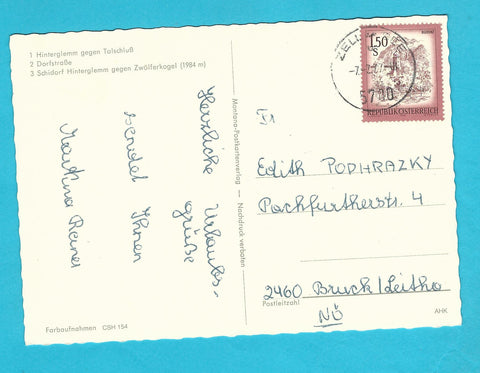 1 Hinterglemm gegen Talschluß
2 Dorfstraße
3 Schidorf Hinterglemm gegen Zwölferkogel (1984 m)
Herzliche Urlaubs-
grüße
sendet Ihnen
Martina Reiner
Farbaufnahmen CSH 154
Montana-Postkartenverlag — Nachdruck verboten
1.50
S
REPUBLIK ÖSTERREICH
ZELL
5700
Edith PODHRAZKY
Pachfurtherstr. 4
2460 Bruck/Leitha
Postleitzahl
NÖ
AHK